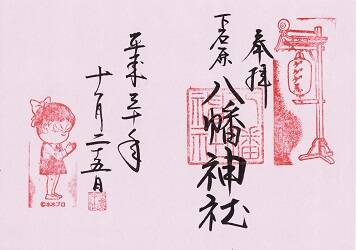 奉拝
下石原
八幡神社
平成三十年
十一月二十五日
©水木プロ